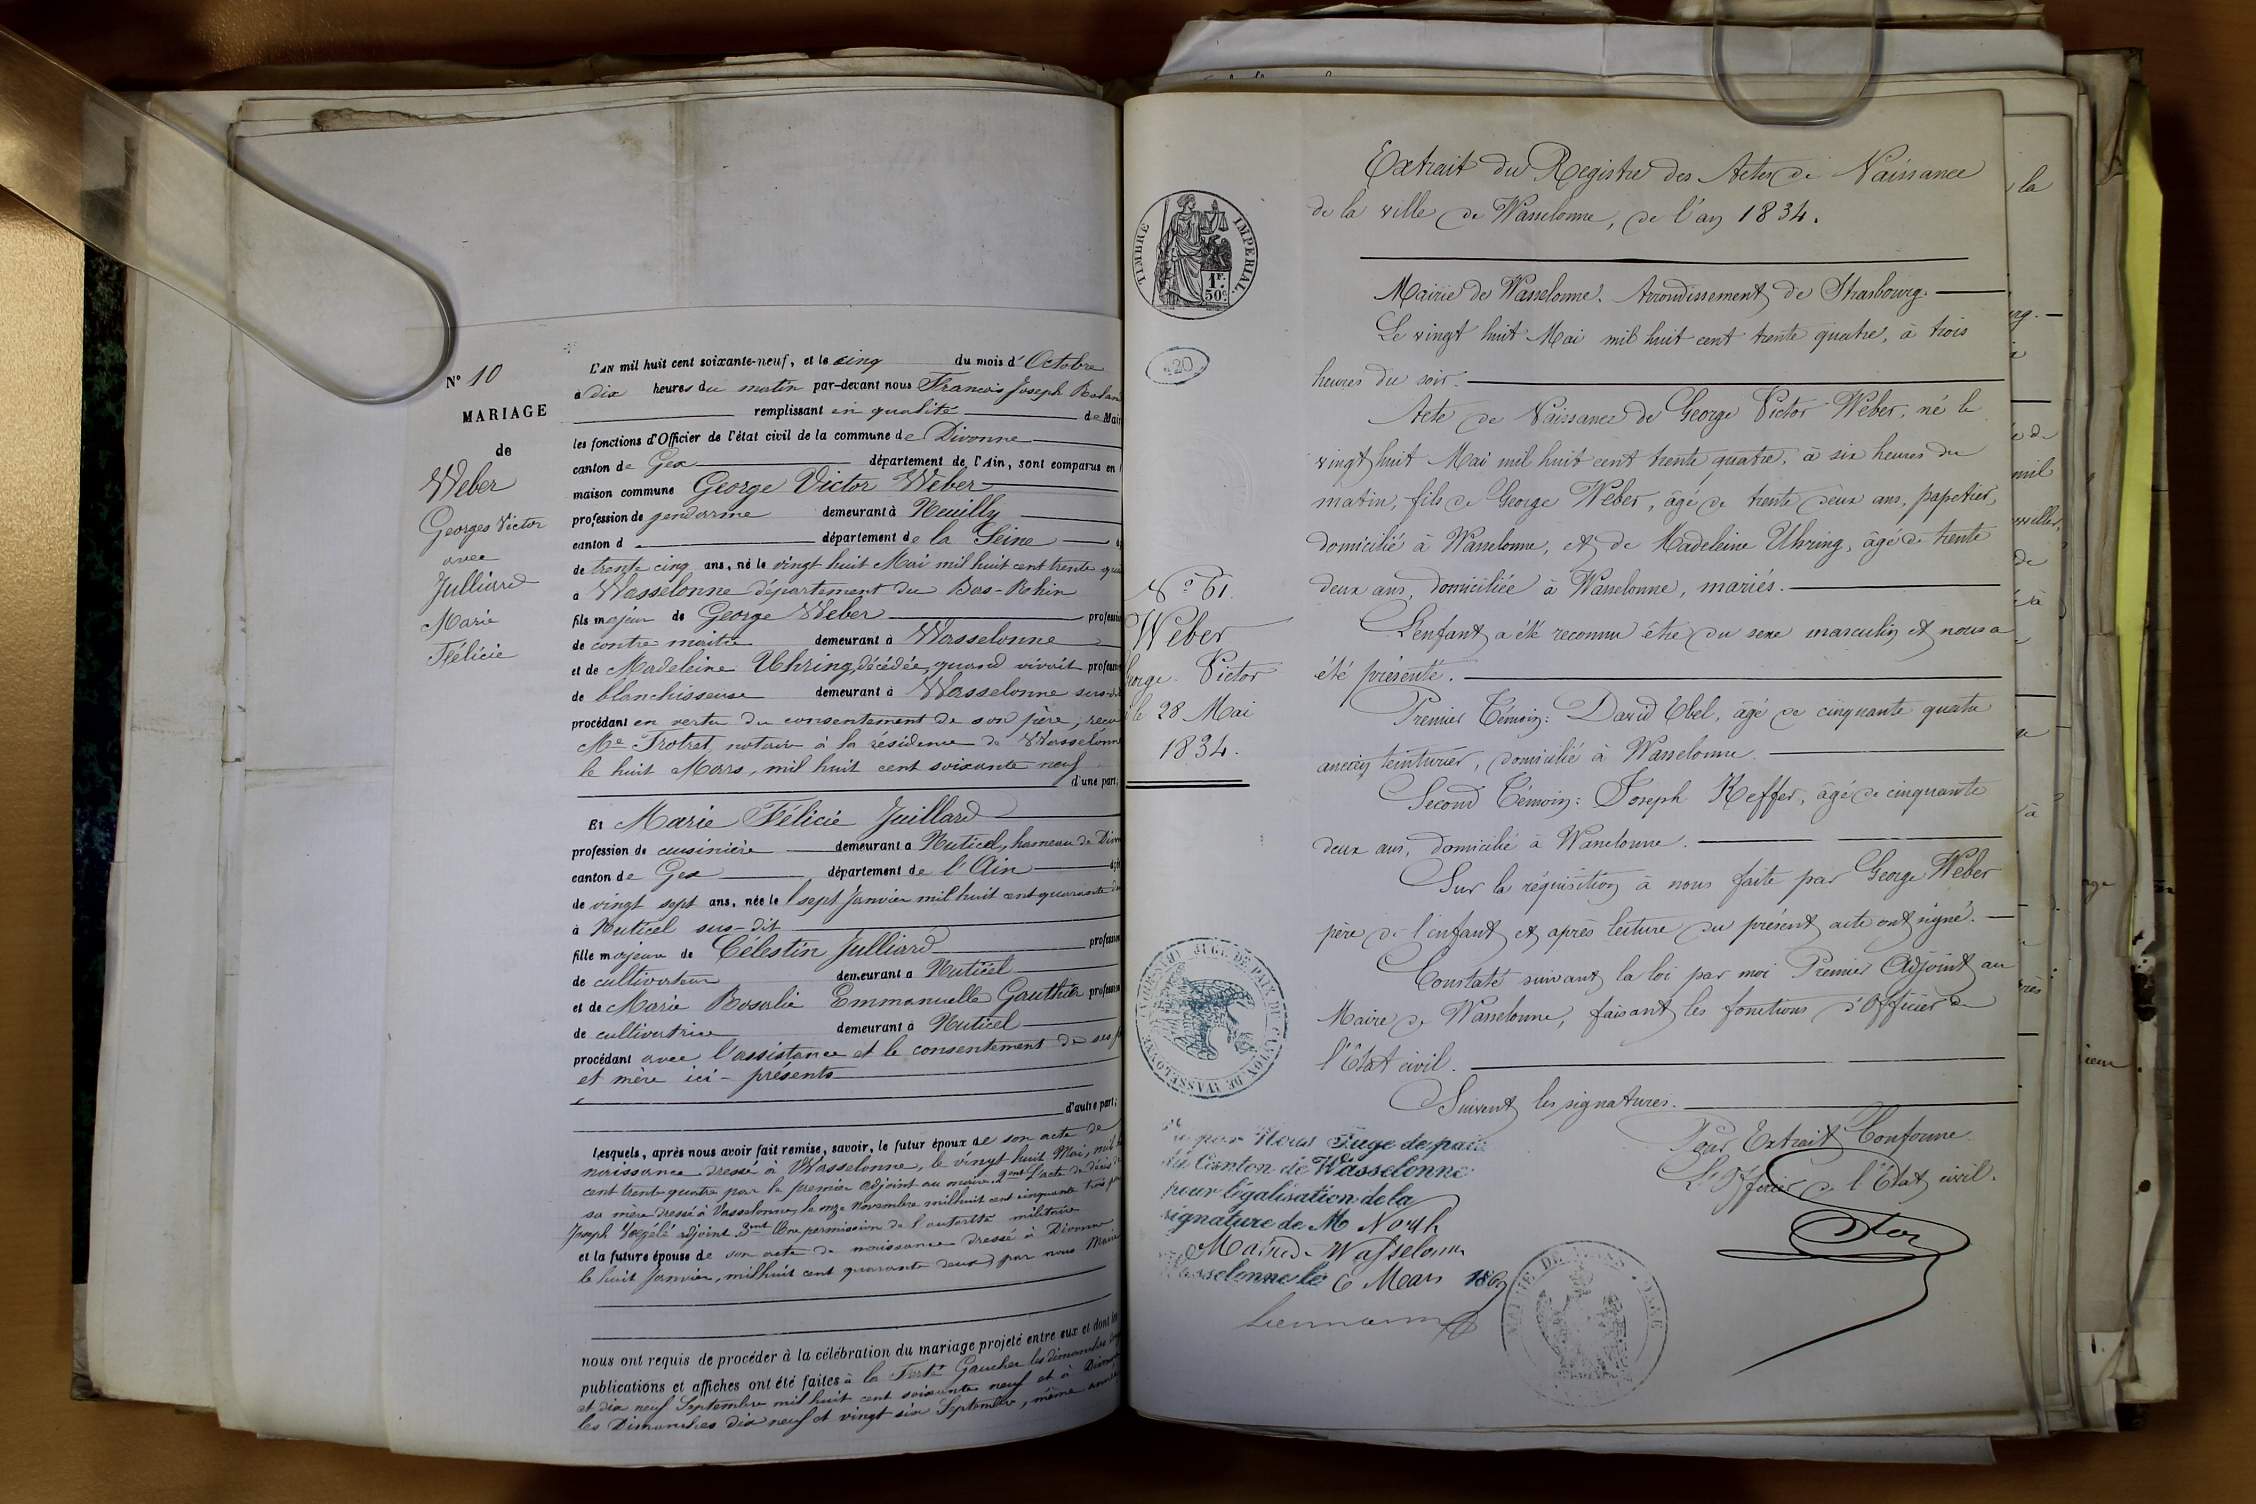 N° 10
MARIAGE
de
Weber
Georges Victor
avec
Julliard
Marie
Félicie
L'AN mil huit cent soixante-neuf, et le cinq du mois d'Octobre
à dix heures du matin par-devant nous François Joseph
remplissant en qualité de Mair
les fonctions d'Officier de l'état civil de la commune de Divonne
canton de Gex département de l'Ain, sont comparus en
maison commune George Victor Weber
profession de gendarme demeurant à Neuilly
canton d département de la Seine
de trente cinq ans, né le vingt huit Mai mil huit cent trente qua
a Wasselonne département du Bas-Rhin
fils majeur de George Weber professi
de contre maitre demeurant à Wasselonne
et de Madeleine Uhring, décédée, quand vivait profession
de blanchisseuse demeurant à Wasselonne sus-dit
procédant en vertu du consentement de son père, reçu
Me Trotret, notaire à la résidence de Wasselonne
le huit Mars, mil huit cent soixante neuf
d'une part;
Et Marie Félicie Juillard
profession de cuisinière demeurant à Ruticel, hameau de Divo
canton de Gex département de l'Ain
de vingt sept ans, née le sept Janvier mil huit cent quarante
à Ruticel sus-dit
fille majeure de Célestin Julliard profession
de cultivateur demeurant a Ruticel
et de Marie Rosalie Emmanuelle Gauthier profession
de cultivatrice demeurant à Ruticel
procédant avec l'assistance et le consentement de ses
et mère ici-présents
d'autre part;
Lesquels, après nous avoir fait remise, savoir, le futur époux de son acte de
naissance dressé à Wasselonne, le vingt huit Mai, mil
cent trente quatre par le premier adjoint au maire 2ment L'acte de décès de
sa mère dressé à Vasselonne, le onze Novembre mil huit cent cinquante trois par
Joseph adjoint 3ment Une permission de l'autorité militaire
et la future épouse de son acte de naissance dressé à Divonne
le huit Janvier, mil huit cent quarante deux par nous Maire
nous ont requis de procéder à la célébration du mariage projeté entre eux et dont les
publications et affiches ont été faites à la Ferté Gaucher les dimanches
et dix neuf Septembre mil huit cent soixante neuf et à Divonne
les Dimanches dix neuf et vingt six Septembre, même année
TIMBRE IMPERIAL
1F.
50c
20
N° 61.
Weber
George Victor
le 28 Mai
1834.
JUGE DE PAIX DU CANTON DE WASSELONNE
par Nous Juge de paix
du Canton de Wasselonne
pour légalisation de la
signature de M North
Maire de Wasselonne
Wasselonne le 6 Mars 1869
Extrait du Registre des Actes de Naissance
de la ville de Wasselonne, de l'an 1834.
Mairie de Wasselonne. Arrondissement de Strasbourg.
Le vingt huit Mai mil huit cent trente quatre, à trois
heures du soir.
Acte de Naissance de George Victor Weber, né le
vingt huit Mai mil huit cent trente quatre, à six heures du
matin, fils de George Weber, âgé de trente deux ans, papetier,
domicilié à Wasselonne, et de Madeleine Uhring, âgée de trente
deux ans, domiciliée à Wasselonne, mariés.
L'enfant a été reconnu être du sexe masculin et nous a
été présenté.
Premier Témoin: David Ebel, âgé de cinquante quatre
ancien teinturier, domicilié à Wasselonne.
Second Témoin: Joseph Keffer, âgé de cinquante
deux ans, domicilié à Wasselonne.
Sur la réquisition à nous faite par George Weber
père de l'enfant et après lecture du présent acte ont signé.
Constaté suivant la loi par moi Premier Adjoint au
Maire de Wasselonne, faisant les fonctions d'Officier de
l'État civil.
Suivent les signatures.
Pour Extrait Conforme.
L'Officier de l'État civil.